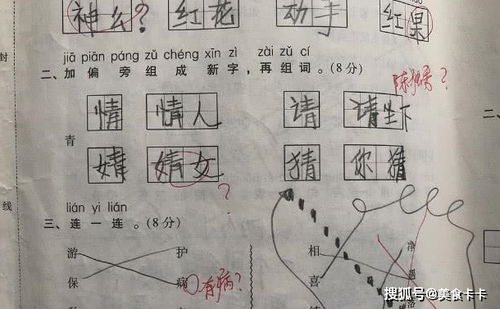 神么? 红花 动手 红果
jiā piān páng zǔ chéng xīn zì zài zǔ cí
二、加偏旁组成新字,再组词。(8分)
情 情人 请 请坐下
青
婧 婧女 猜 你猜
?
lián yi lián
三、连一连。(8分)
游 护 相 冷
保 病 有病? 喜 遇
封
线
二、
搜狐号@美食卡卡